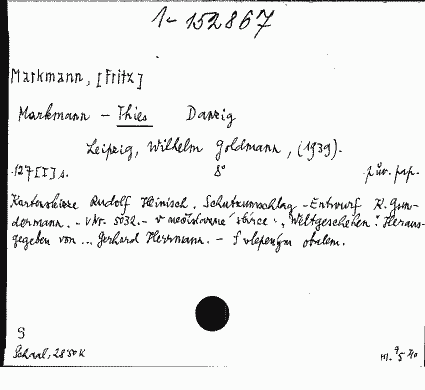 1-152867
Markmann, [Fritz]
Markmann - Thies Danzig
Leipzig, Wilhelm Goldmann, (1939).
127 [I] s. 8° pův. pap.
Kartenskizze Rudolf Heinisch. Schutzumschlag-Entwurf R. Gun-
dermann. - VNr. 5032. - V nečíslované sbírce: "Weltgeschehen". Heraus-
gegeben von ... Gerhard Herrmann. - S vlepeným obalem.
S
Schaal, 2850K